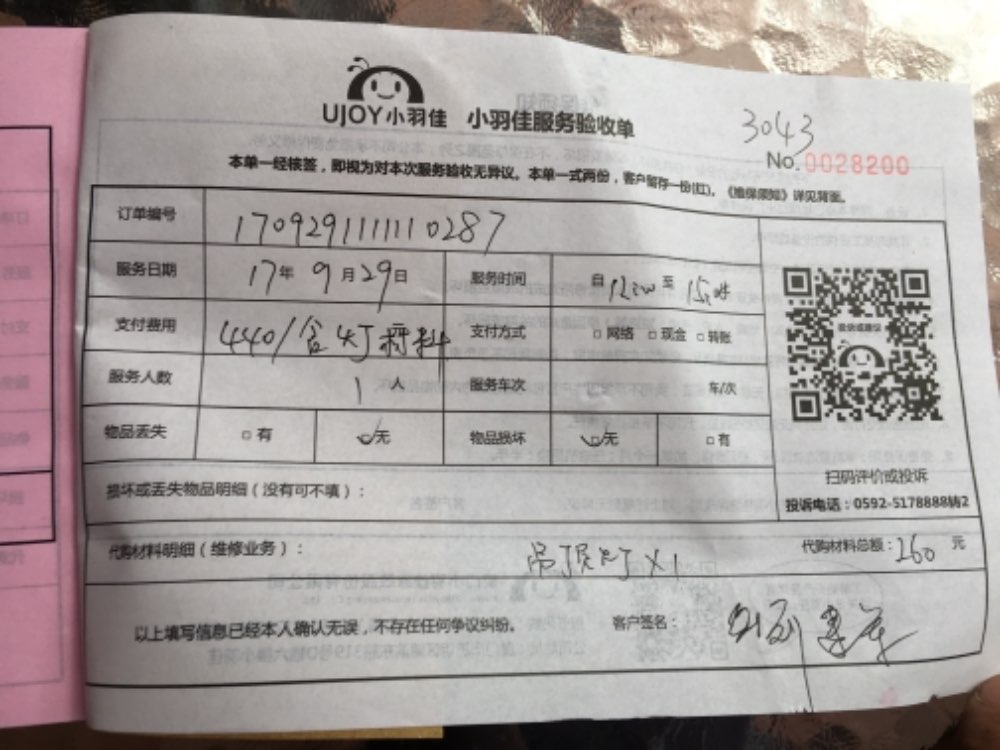 UJOY小羽佳 小羽佳服务验收单
3043
No.0028200
本单一经核签，即视为对本次服务验收无异议。本单一式两份，客户留存一份(红)。《维保须知》详见背面。
订单编号 170929111110287
服务日期 17年9月29日 服务时间 自12:00至15:时
支付费用 440/含灯材料 支付方式 □网络 □现金 □转账
服务人数 1人 服务车次 车/次
物品丢失 □有 ☑无 物品损坏 ☑无 □有
扫码评价或投诉
损坏或丢失物品明细（没有可不填）：
投诉电话：0592-5178888转2
代购材料明细（维修业务）： 吊顶灯X1 代购材料总额：260元
以上填写信息已经本人确认无误，不存在任何争议纠纷。 客户签名：